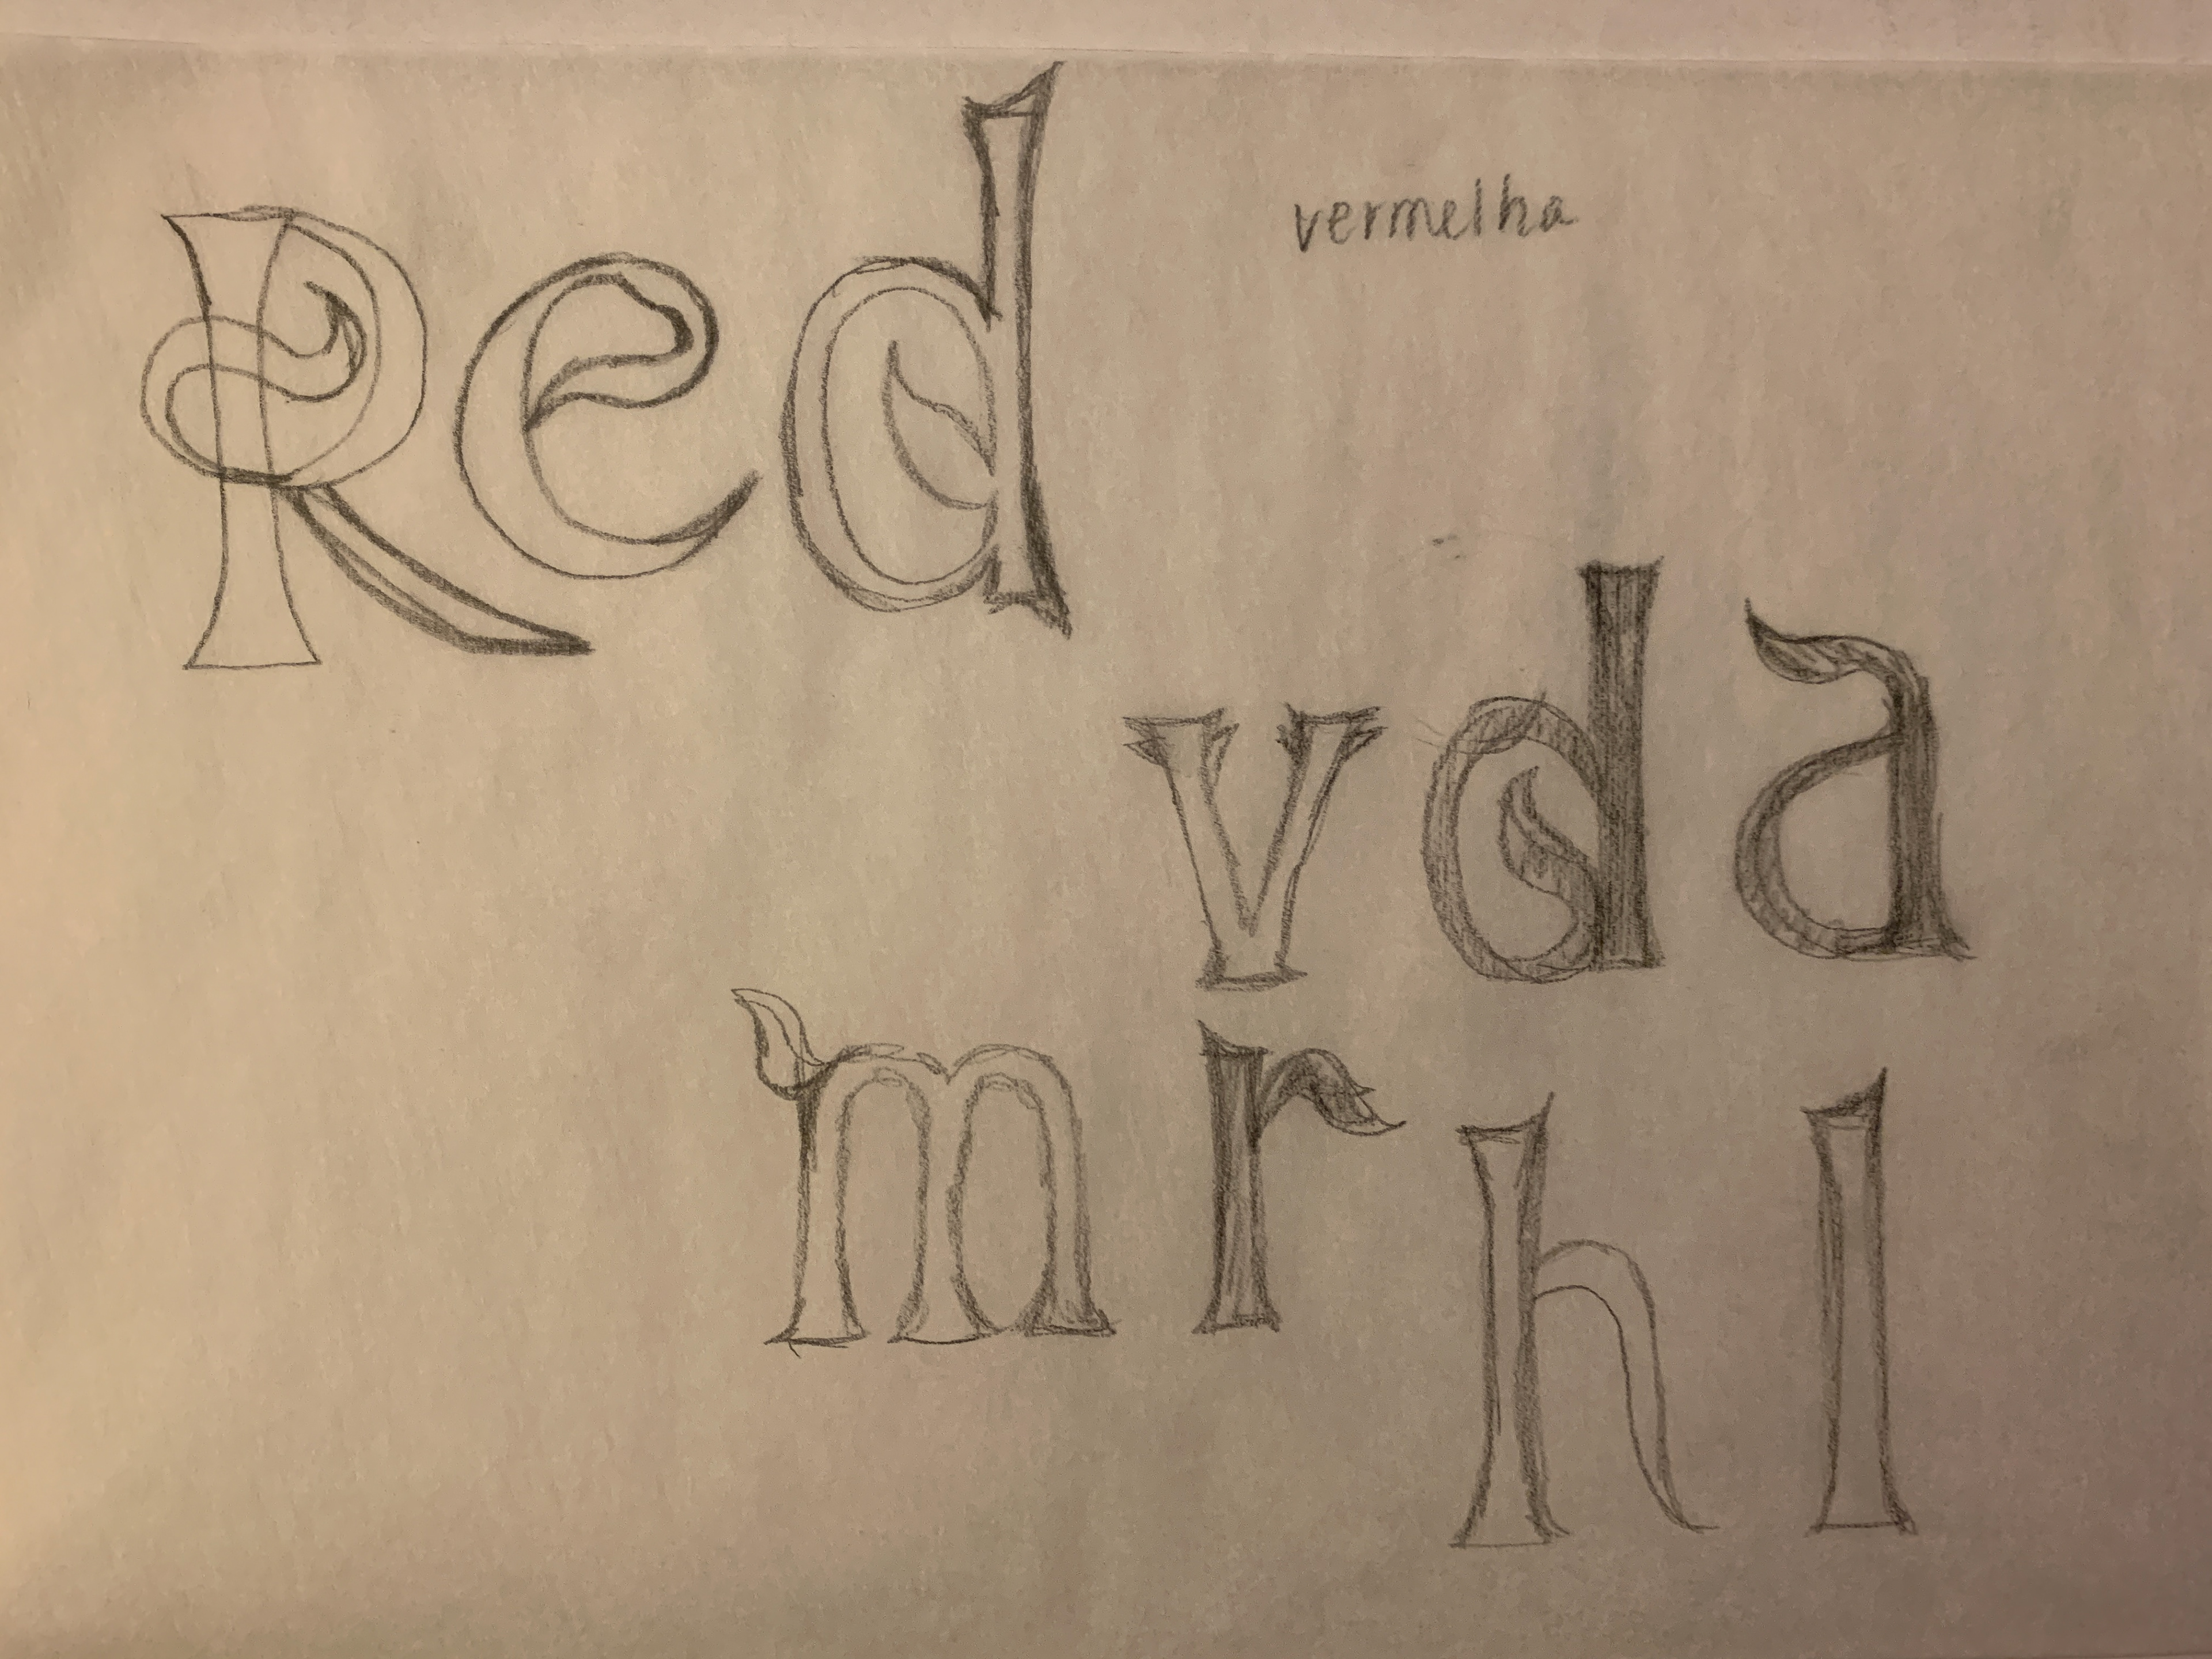 Red
vermelha
v d a
m r h l